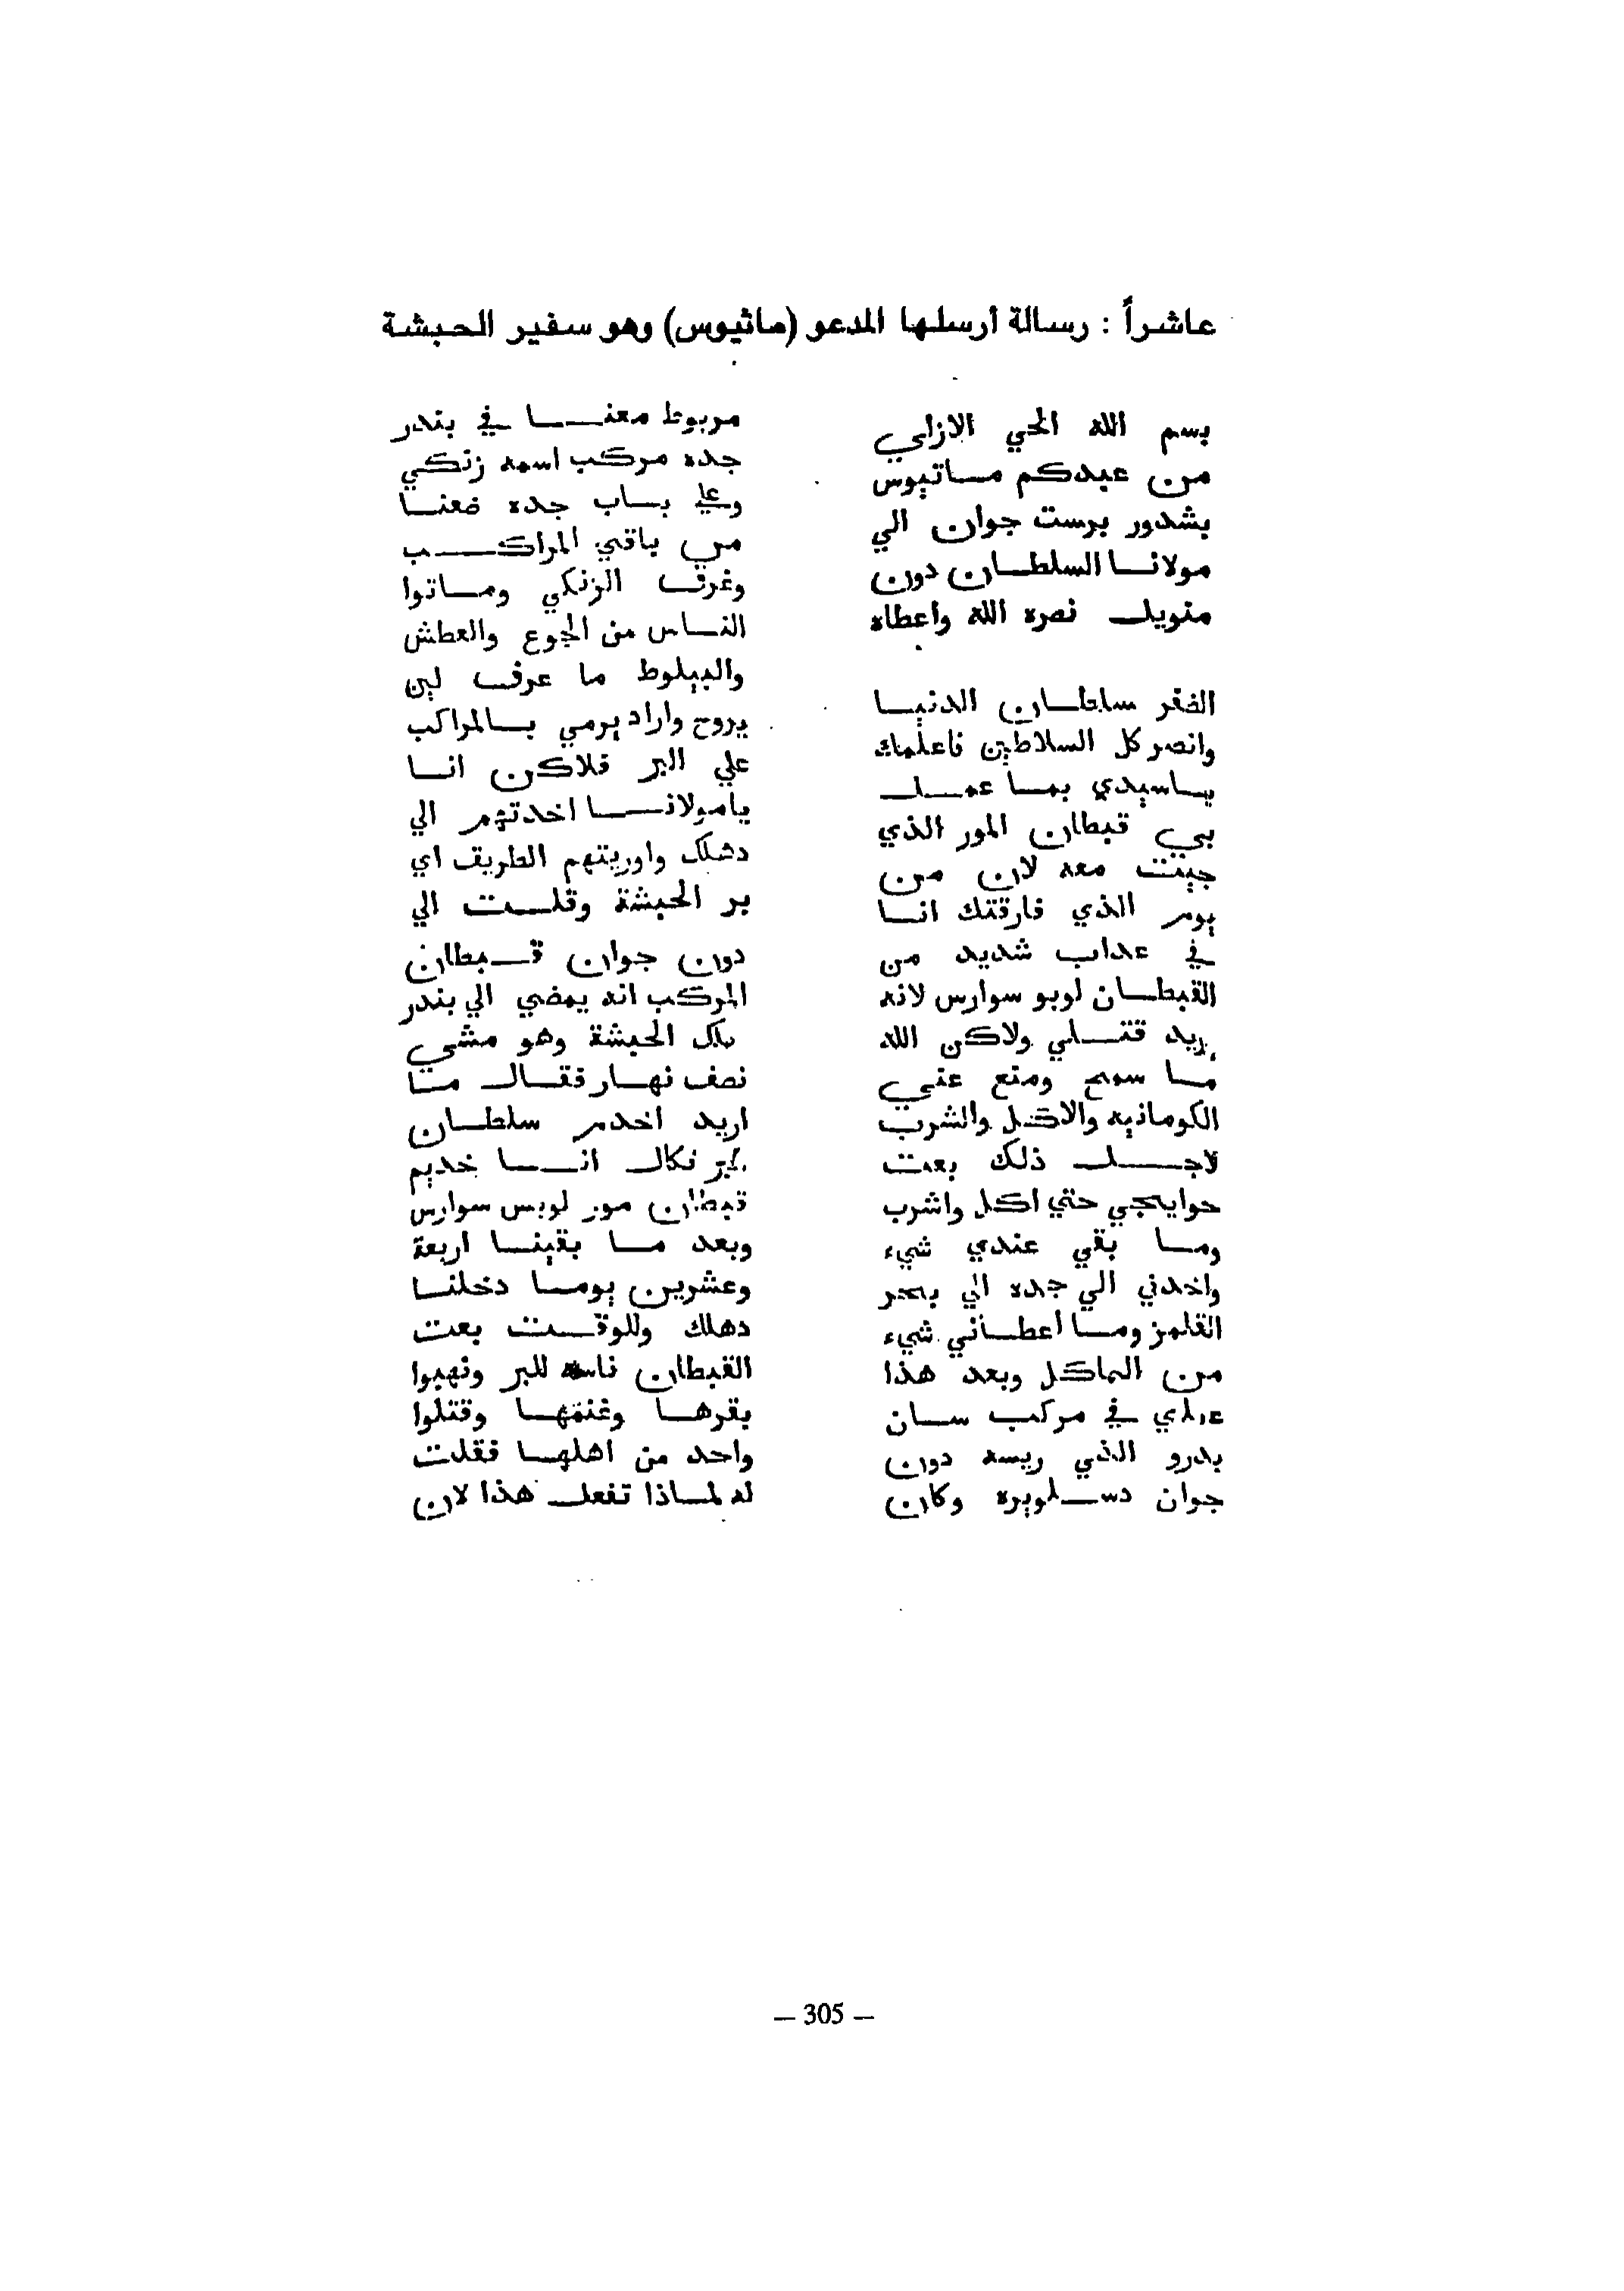 عاشراً : رسالة أرسلها المدعو (ماثيوس) وهو سفير الحبشة
بسم الله الحي الازلي
من عبدكم ماتيوس
بشدور برست جوان الي
مولانا السلطان دون
منويل نصره الله واعطاه
الفقر سلطان الدنيا
وانصر كل السلاطين فاعلمك
ياسيدي بما عمل
بي قبطان المور الذي
جيت معه لان من
يوم الذي فارقتك انا
في عداب شديد من
القبطان لوبو سوارس لانه
يريد قتلي ولاكن الله
ما سمح ومنع عني
الكومانيه والاكل والشرب
لاجل ذلك بعت
حوايجي حتي اكل واشرب
وما بقي عندي شيء
واخدني الي جده الي بحر
القلمز وما أعطاني شيء
من الماكل وبعد هذا
في مركب سان
بدرو الذي ريسه دون
جوان دسلويره وكان
مربوط معنا في بندر
جده مركب اسمه زنكي
وعلي باب جده ضعنا
من باقي المراكب
وغرق الزنكي وماتوا
الناس من الجوع والعطش
والبيلوط ما عرف لين
يروح واراد يرمي بالمراكب
علي البر فلاكن انا
يامولانا اخدتهم الي
دهلك واوريتهم الطريق اي
بر الحبشة وقلت الي
دون جوان قبطان
المركب انه يمضي الي بندر
ملك الحبشة وهو مشي
نصف نهار فقال ما
اريد اخدم سلطان
برتكال انا خديم
قبطان مور لوبس سوارس
وبعد ما بقينا اربعة
وعشرين يوما دخلنا
دهلك وللوقت بعت
القبطان ناسه للبر ونهبوا
بقرها وغنمها وقتلوا
واحد من اهلها فقلت
له لماذا تفعل هذا لان
— 305 —